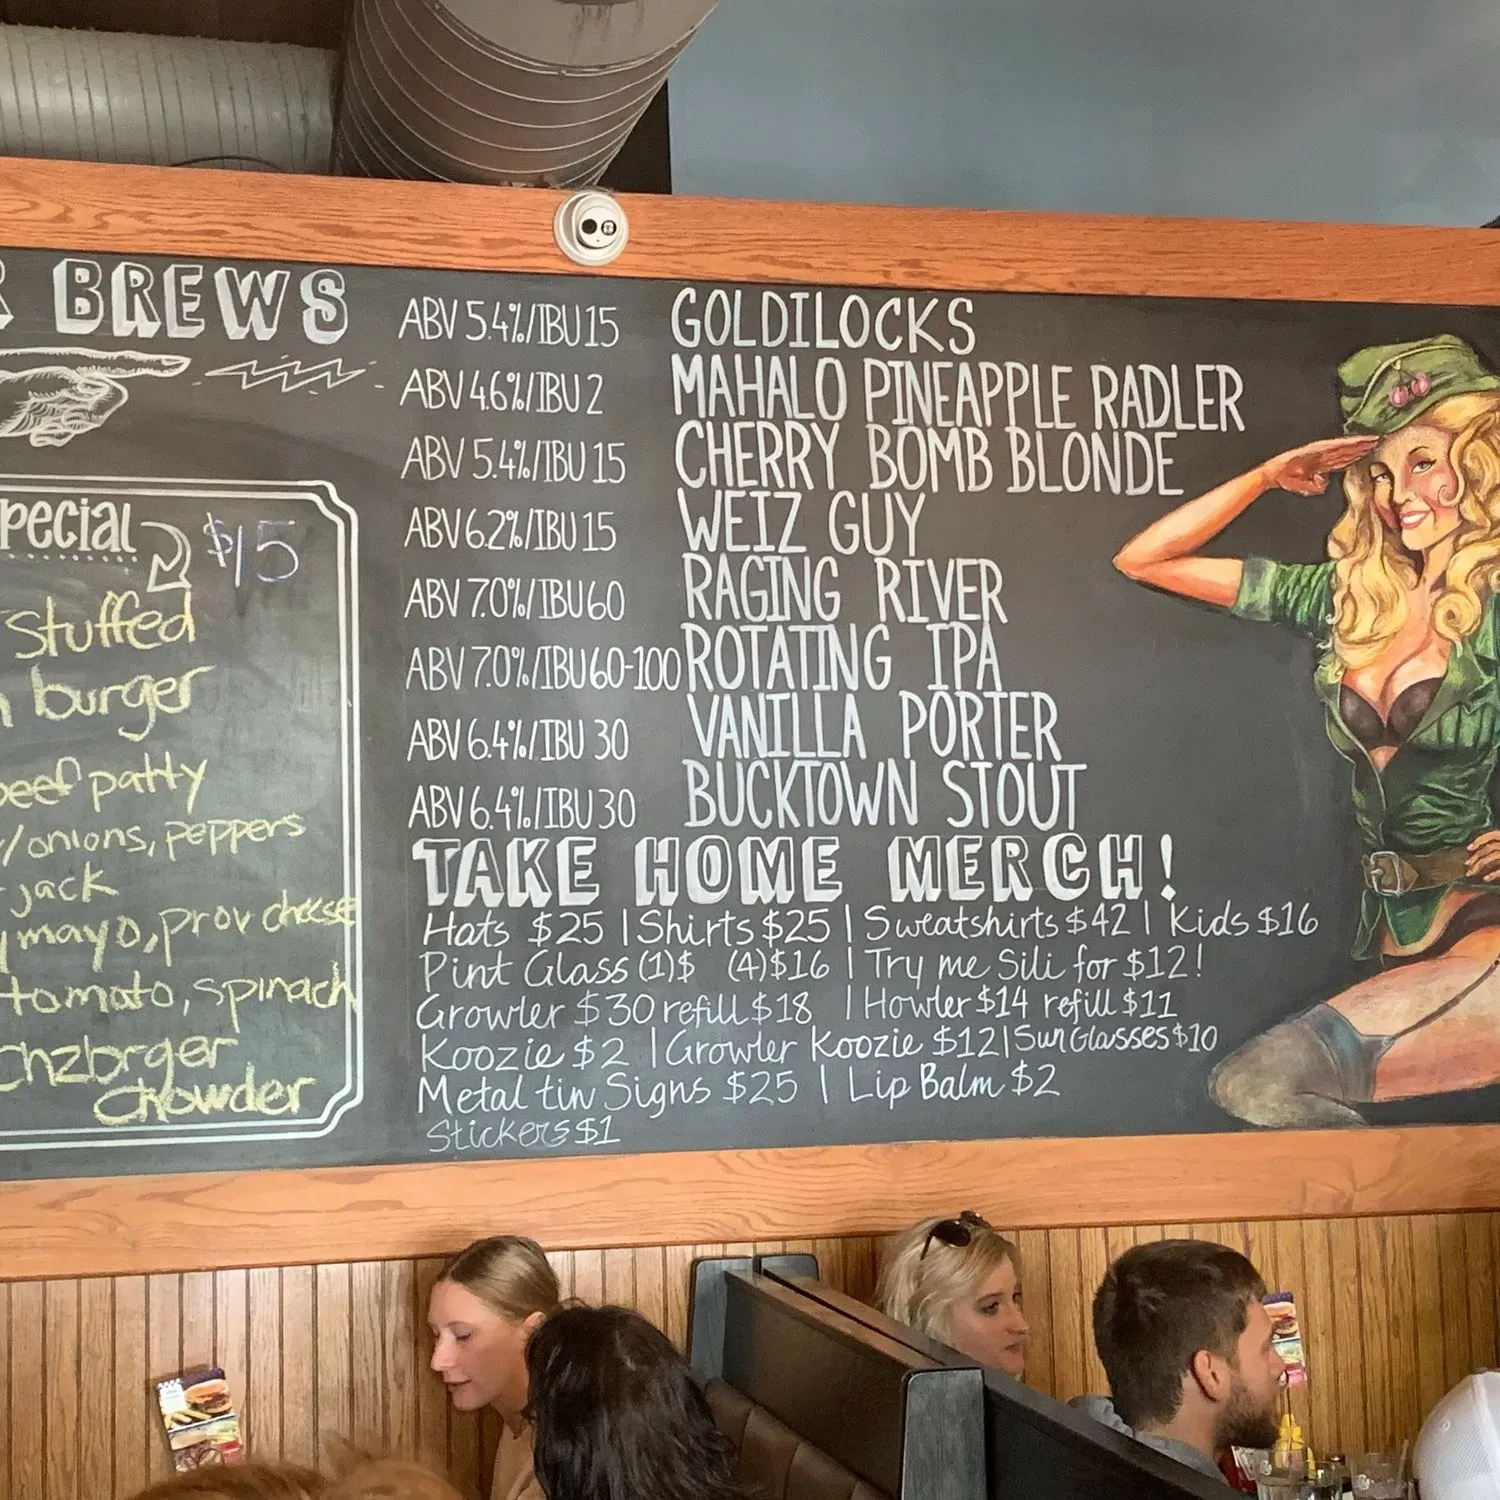 BREWS
pecial
$15
Stuffed
burger
beef patty
w/onions, peppers
jack
mayo, prov cheese
tomato, spinach
Chzbrger
Chowder
ABV 5.4%/IBU 15 GOLDILOCKS
ABV 4.6%/IBU 2 MAHALO PINEAPPLE RADLER
ABV 5.4%/IBU 15 CHERRY BOMB BLONDE
ABV 6.2%/IBU 15 WEIZ GUY
ABV 7.0%/IBU 60 RAGING RIVER
ABV 7.0%/IBU 60-100 ROTATING IPA
ABV 6.4%/IBU 30 VANILLA PORTER
ABV 6.4%/IBU 30 BUCKTOWN STOUT
TAKE HOME MERCH!
Hats $25 | Shirts $25 | Sweatshirts $42 | Kids $16
Pint Glass (1)$ (4)$16 | Try me Sili for $12!
Growler $30 refill $18 | Howler $14 refill $11
Koozie $2 | Growler Koozie $12 | SunGlasses $10
Metal tin Signs $25 | Lip Balm $2
Stickers $1